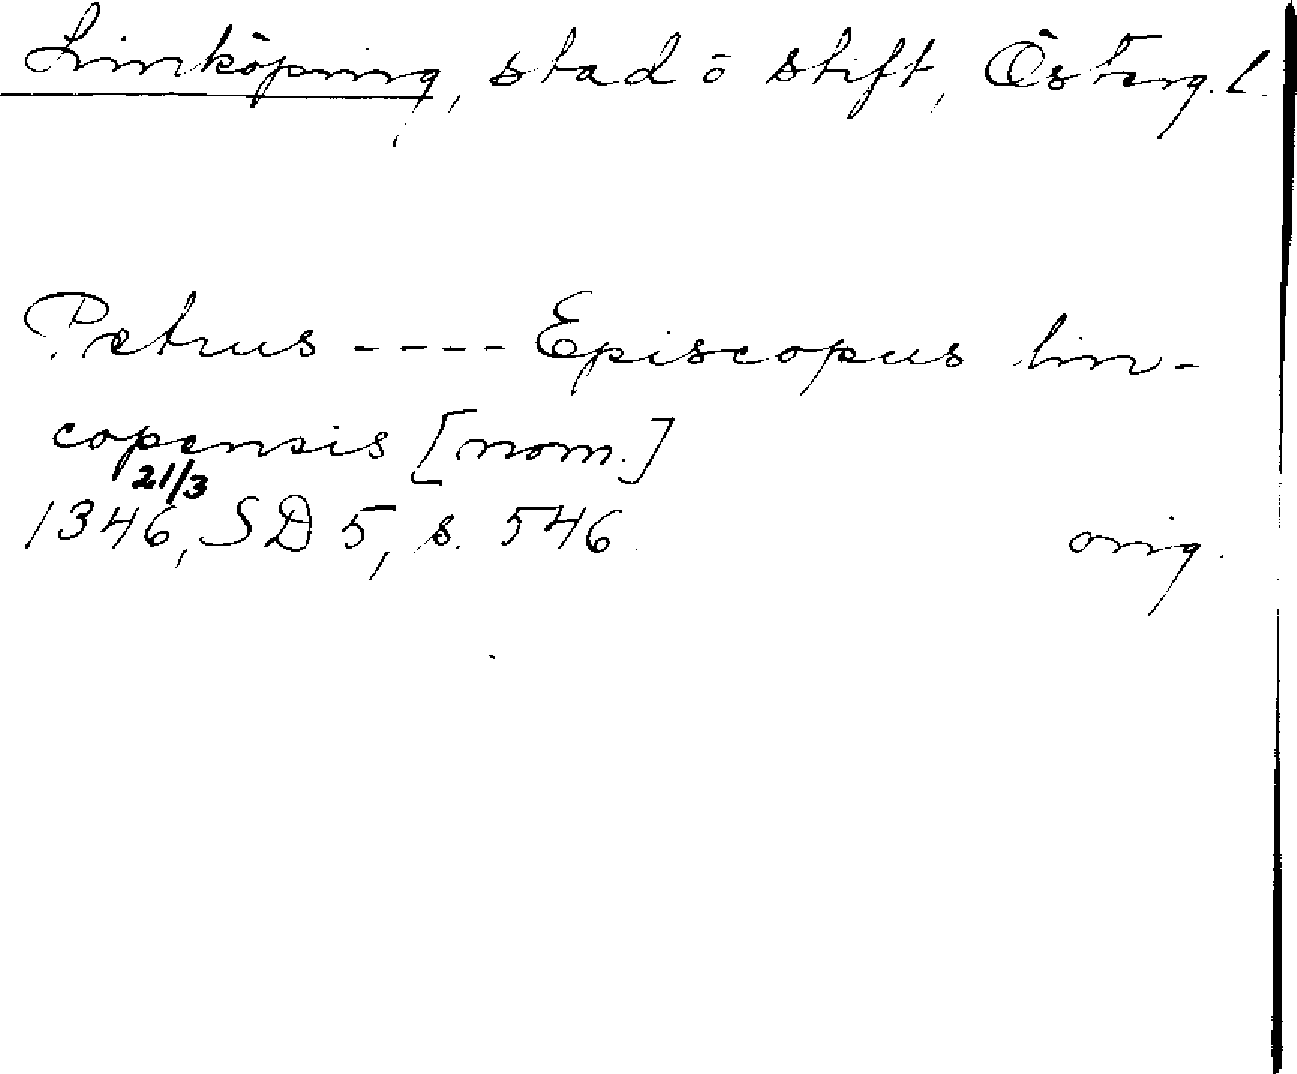 Linköping, stad o stift, Österg. l.
Petrus ---- Episcopus lin-
copensis [nom.]
21/3
1346, SD 5, s. 546 orig.